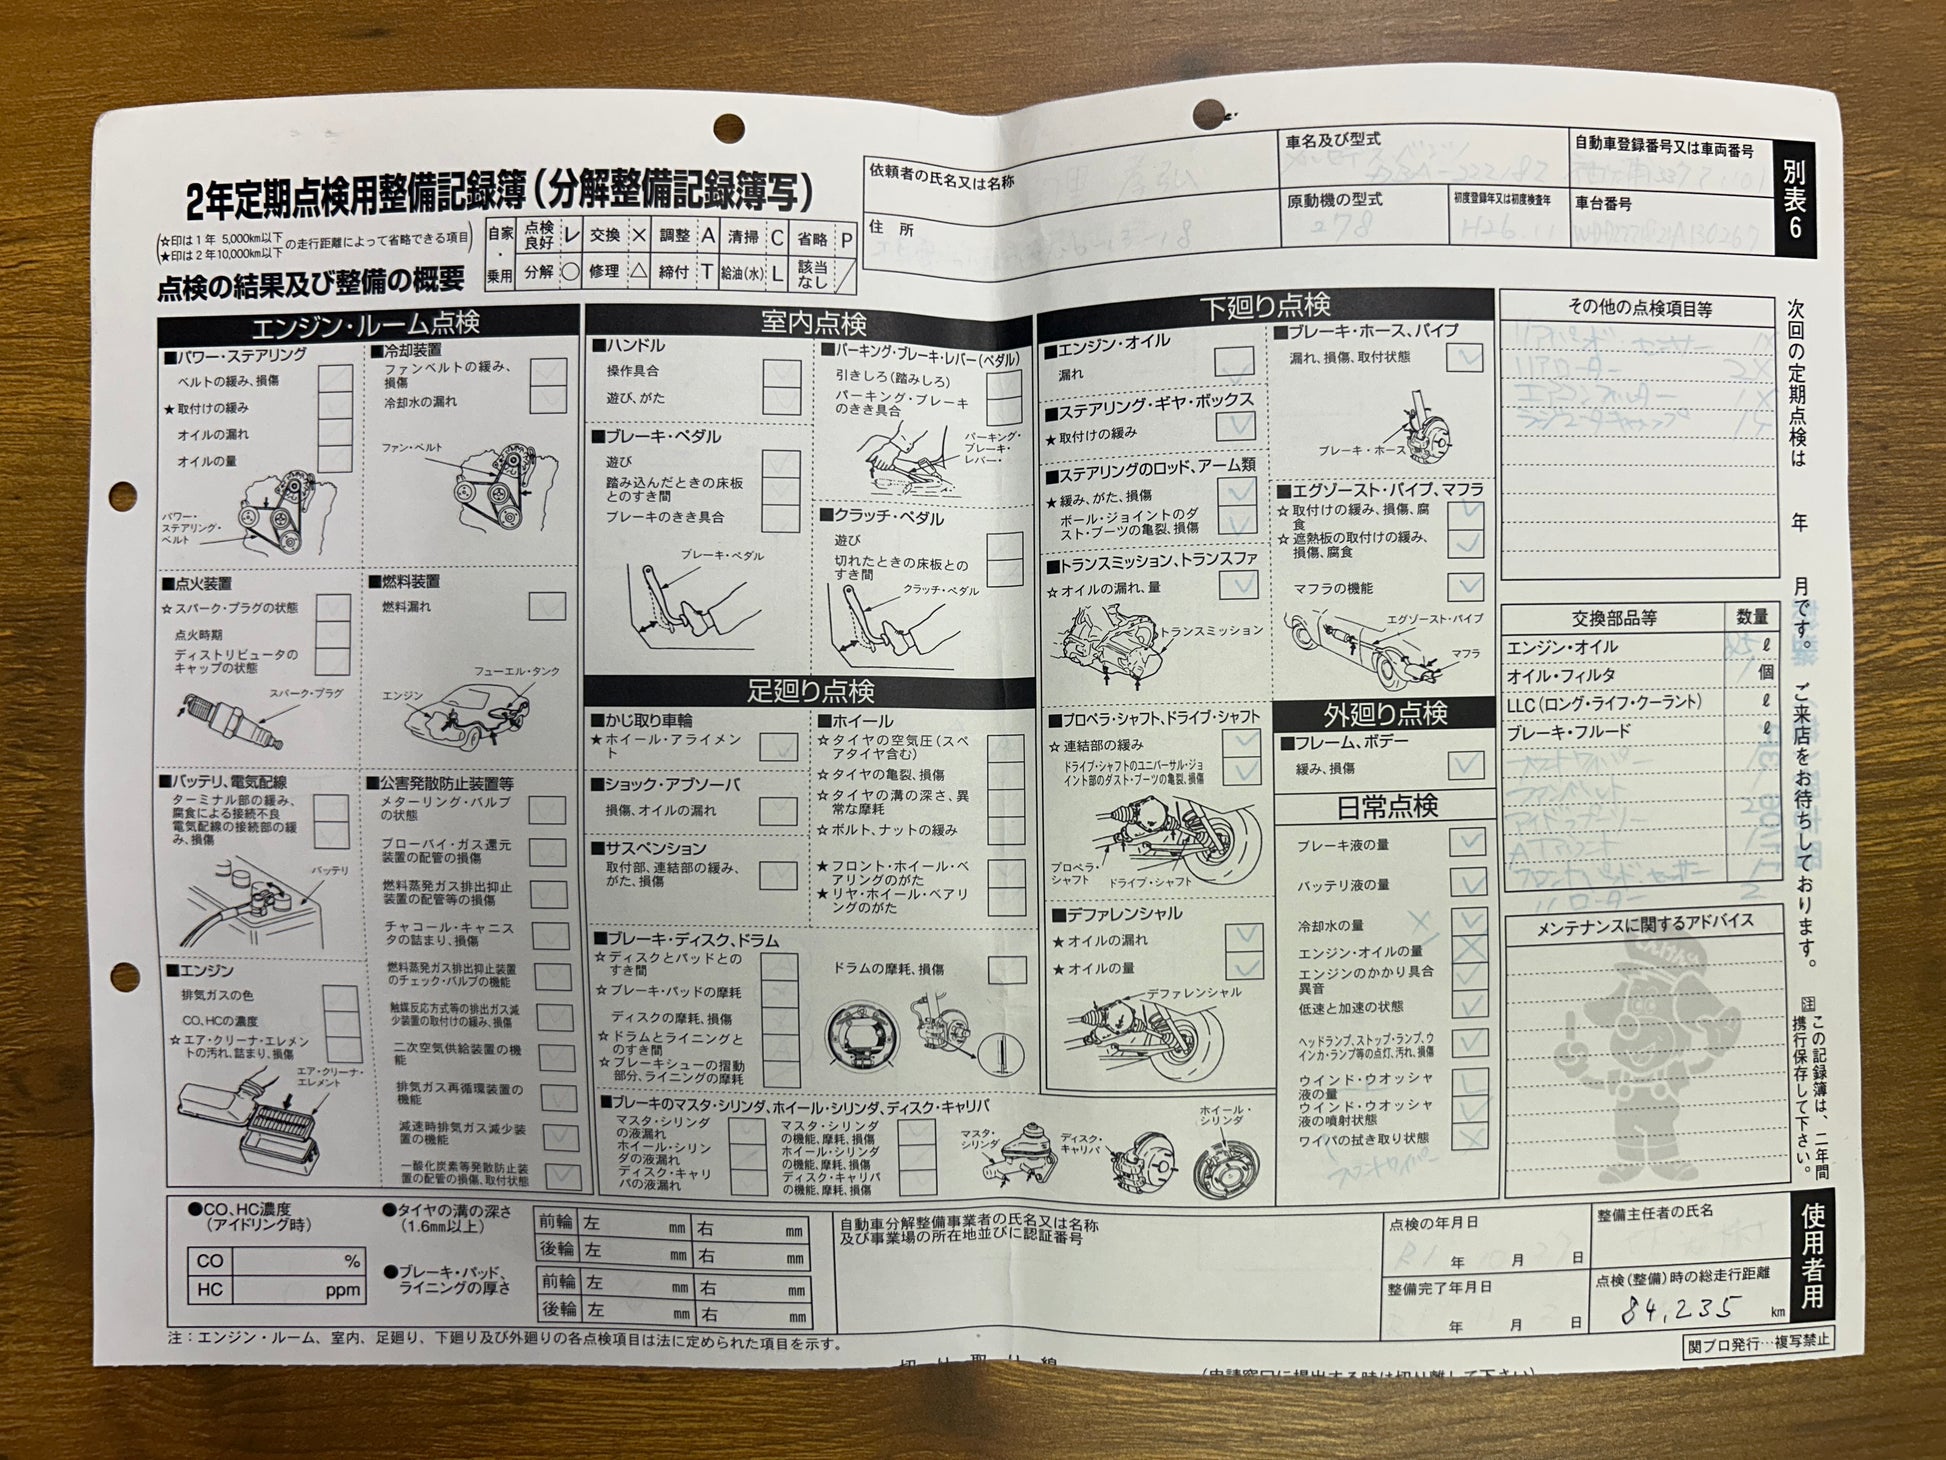 別表6
2年定期点検用整備記録簿(分解整備記録簿写)
(☆印は1年 5,000km以下 ★印は2年10,000km以下 の走行距離によって省略できる項目)
点検の結果及び整備の概要
自家・乗用
点検良好 レ 交換 × 調整 A 清掃 C 省略 P
分解 ○ 修理 △ 締付 T 給油(水) L 該当なし /
依頼者の氏名又は名称
住所
車名及び型式
DBA-222182
自動車登録番号又は車両番号
原動機の型式
278
初度登録年又は初度検査年
H26.11
車台番号
エンジン・ルーム点検
■パワー・ステアリング
ベルトの緩み、損傷
★取付けの緩み
オイルの漏れ
オイルの量
パワー・ステアリング・ベルト
■冷却装置
ファンベルトの緩み、損傷
冷却水の漏れ
ファン・ベルト
■点火装置
☆スパーク・プラグの状態
点火時期
ディストリビュータのキャップの状態
スパーク・プラグ
■燃料装置
燃料漏れ
フューエル・タンク
エンジン
■バッテリ、電気配線
ターミナル部の緩み、腐食による接続不良
電気配線の接続部の緩み、損傷
バッテリ
■エンジン
排気ガスの色
CO、HCの濃度
☆エア・クリーナ・エレメントの汚れ、詰まり、損傷
エア・クリーナ・エレメント
■公害発散防止装置等
メターリング・バルブの状態
ブローバイ・ガス還元装置の配管の損傷
燃料蒸発ガス排出抑止装置の配管等の損傷
チャコール・キャニスタの詰まり、損傷
燃料蒸発ガス排出抑止装置のチェック・バルブの機能
触媒反応方式等の排出ガス減少装置の取付けの緩み、損傷
二次空気供給装置の機能
排気ガス再循環装置の機能
減速時排気ガス減少装置の機能
一酸化炭素等発散防止装置の配管の損傷、取付状態
室内点検
■ハンドル
操作具合
遊び、がた
■ブレーキ・ペダル
遊び
踏み込んだときの床板とのすき間
ブレーキのきき具合
ブレーキ・ペダル
■パーキング・ブレーキ・レバー(ペダル)
引きしろ(踏みしろ)
パーキング・ブレーキのきき具合
パーキング・ブレーキ・レバー・
■クラッチ・ペダル
遊び
切れたときの床板とのすき間
クラッチ・ペダル
足廻り点検
■かじ取り車輪
★ホイール・アライメント
■ショック・アブソーバ
損傷、オイルの漏れ
■サスペンション
取付部、連結部の緩み、がた、損傷
■ホイール
☆タイヤの空気圧(スペアタイヤ含む)
☆タイヤの亀裂、損傷
☆タイヤの溝の深さ、異常な摩耗
☆ボルト、ナットの緩み
★フロント・ホイール・ベアリングのがた
★リヤ・ホイール・ベアリングのがた
■ブレーキ・ディスク、ドラム
☆ディスクとパッドとのすき間
☆ブレーキ・パッドの摩耗
ディスクの摩耗、損傷
☆ドラムとライニングとのすき間
☆ブレーキシューの摺動部分、ライニングの摩耗
ドラムの摩耗、損傷
■ブレーキのマスタ・シリンダ、ホイール・シリンダ、ディスク・キャリパ
マスタ・シリンダの液漏れ
ホイール・シリンダの液漏れ
ディスク・キャリパの液漏れ
マスタ・シリンダの機能、摩耗、損傷
ホイール・シリンダの機能、摩耗、損傷
ディスク・キャリパの機能、摩耗、損傷
マスタ・シリンダ
ディスク・キャリパ
ホイール・シリンダ
下廻り点検
■エンジン・オイル
漏れ
■ステアリング・ギヤ・ボックス
★取付けの緩み
■ステアリングのロッド、アーム類
★緩み、がた、損傷
ボール・ジョイントのダスト・ブーツの亀裂、損傷
■トランスミッション、トランスファ
☆オイルの漏れ、量
トランスミッション
■プロペラ・シャフト、ドライブ・シャフト
☆連結部の緩み
ドライブ・シャフトのユニバーサル・ジョイント部のダスト・ブーツの亀裂、損傷
プロペラ・シャフト
ドライブ・シャフト
■デファレンシャル
★オイルの漏れ
★オイルの量
デファレンシャル
■ブレーキ・ホース、パイプ
漏れ、損傷、取付状態
ブレーキ・ホース
■エグゾースト・パイプ、マフラ
☆取付けの緩み、損傷、腐食
☆遮熱板の取付けの緩み、損傷、腐食
マフラの機能
エグゾースト・パイプ
マフラ
外廻り点検
■フレーム、ボデー
緩み、損傷
日常点検
ブレーキ液の量
バッテリ液の量
冷却水の量
エンジン・オイルの量
エンジンのかかり具合 異音
低速と加速の状態
ヘッドランプ、ストップ・ランプ、ウインカ・ランプ等の点灯、汚れ、損傷
ウインド・ウオッシャ液の量
ウインド・ウオッシャ液の噴射状態
ワイパの拭き取り状態
フロントワイパー
その他の点検項目等
リアローター 2X
エアコンフィルター 1X
ラジエータキャップ
交換部品等 数量
エンジン・オイル ℓ
オイル・フィルタ 1 個
LLC(ロング・ライフ・クーラント) ℓ
ブレーキ・フルード ℓ
フロントワイパー
ファンベルト
メンテナンスに関するアドバイス
次回の定期点検は 年 月です。ご来店をお待ちしております。
注 この記録簿は、二年間携行保存して下さい。
使用者用
●CO、HC濃度(アイドリング時)
CO %
HC ppm
●タイヤの溝の深さ(1.6mm以上)
前輪 左 mm 右 mm
後輪 左 mm 右 mm
●ブレーキ・パッド、ライニングの厚さ
前輪 左 mm 右 mm
後輪 左 mm 右 mm
自動車分解整備事業者の氏名又は名称及び事業場の所在地並びに認証番号
点検の年月日
R1 年 月 日
整備完了年月日
年 月 日
整備主任者の氏名
点検(整備)時の総走行距離
84,235 km
注:エンジン・ルーム、室内、足廻り、下廻り及び外廻りの各点検項目は法に定められた項目を示す。
関ブロ発行…複写禁止
切り取り線
(申請窓口に提出する時は切り離して下さい)